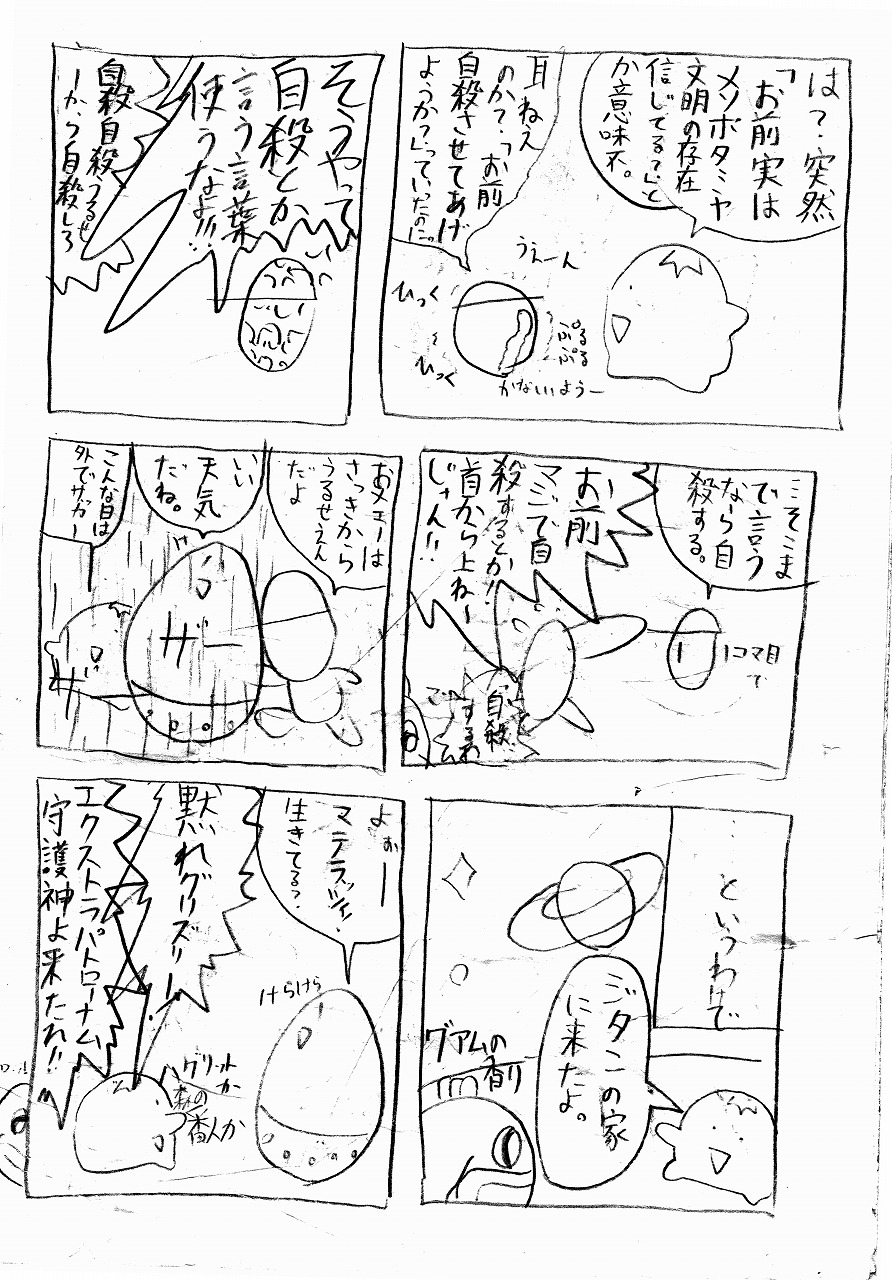 は？突然
「お前実は
メソポタミヤ
文明の存在
信じてる？」と
か意味不。
耳ねえ
のか？「お前
自殺させてあげ
ようか？」っていったのに。
うぇーん
ひっく
ひっく
ぷる
ぷる
かないいよう～
そうやって
自殺とか
言う言葉
使うなよ!!
自殺自殺うるせ
ーから自殺しろ
…そこま
で言う
なら自
殺する。
1コマ目
て
お前
マジで自
殺するとか!!
首から上ね～
じゃん!!
自殺
するわ
おメェーは
さっきから
うるせえん
だよ
いい
天気
だね。
こんな日は
外でサッカー
ザー
ザ
…というわけで
ジタンの家
に来たよ。
グアムの
香り
よぉー
マテラッツィ!
生きてる？
けらけら
黙れグリズリー!
エクストラパトローナム
守護神よ来たれ!!
グリットか
森の
番人か